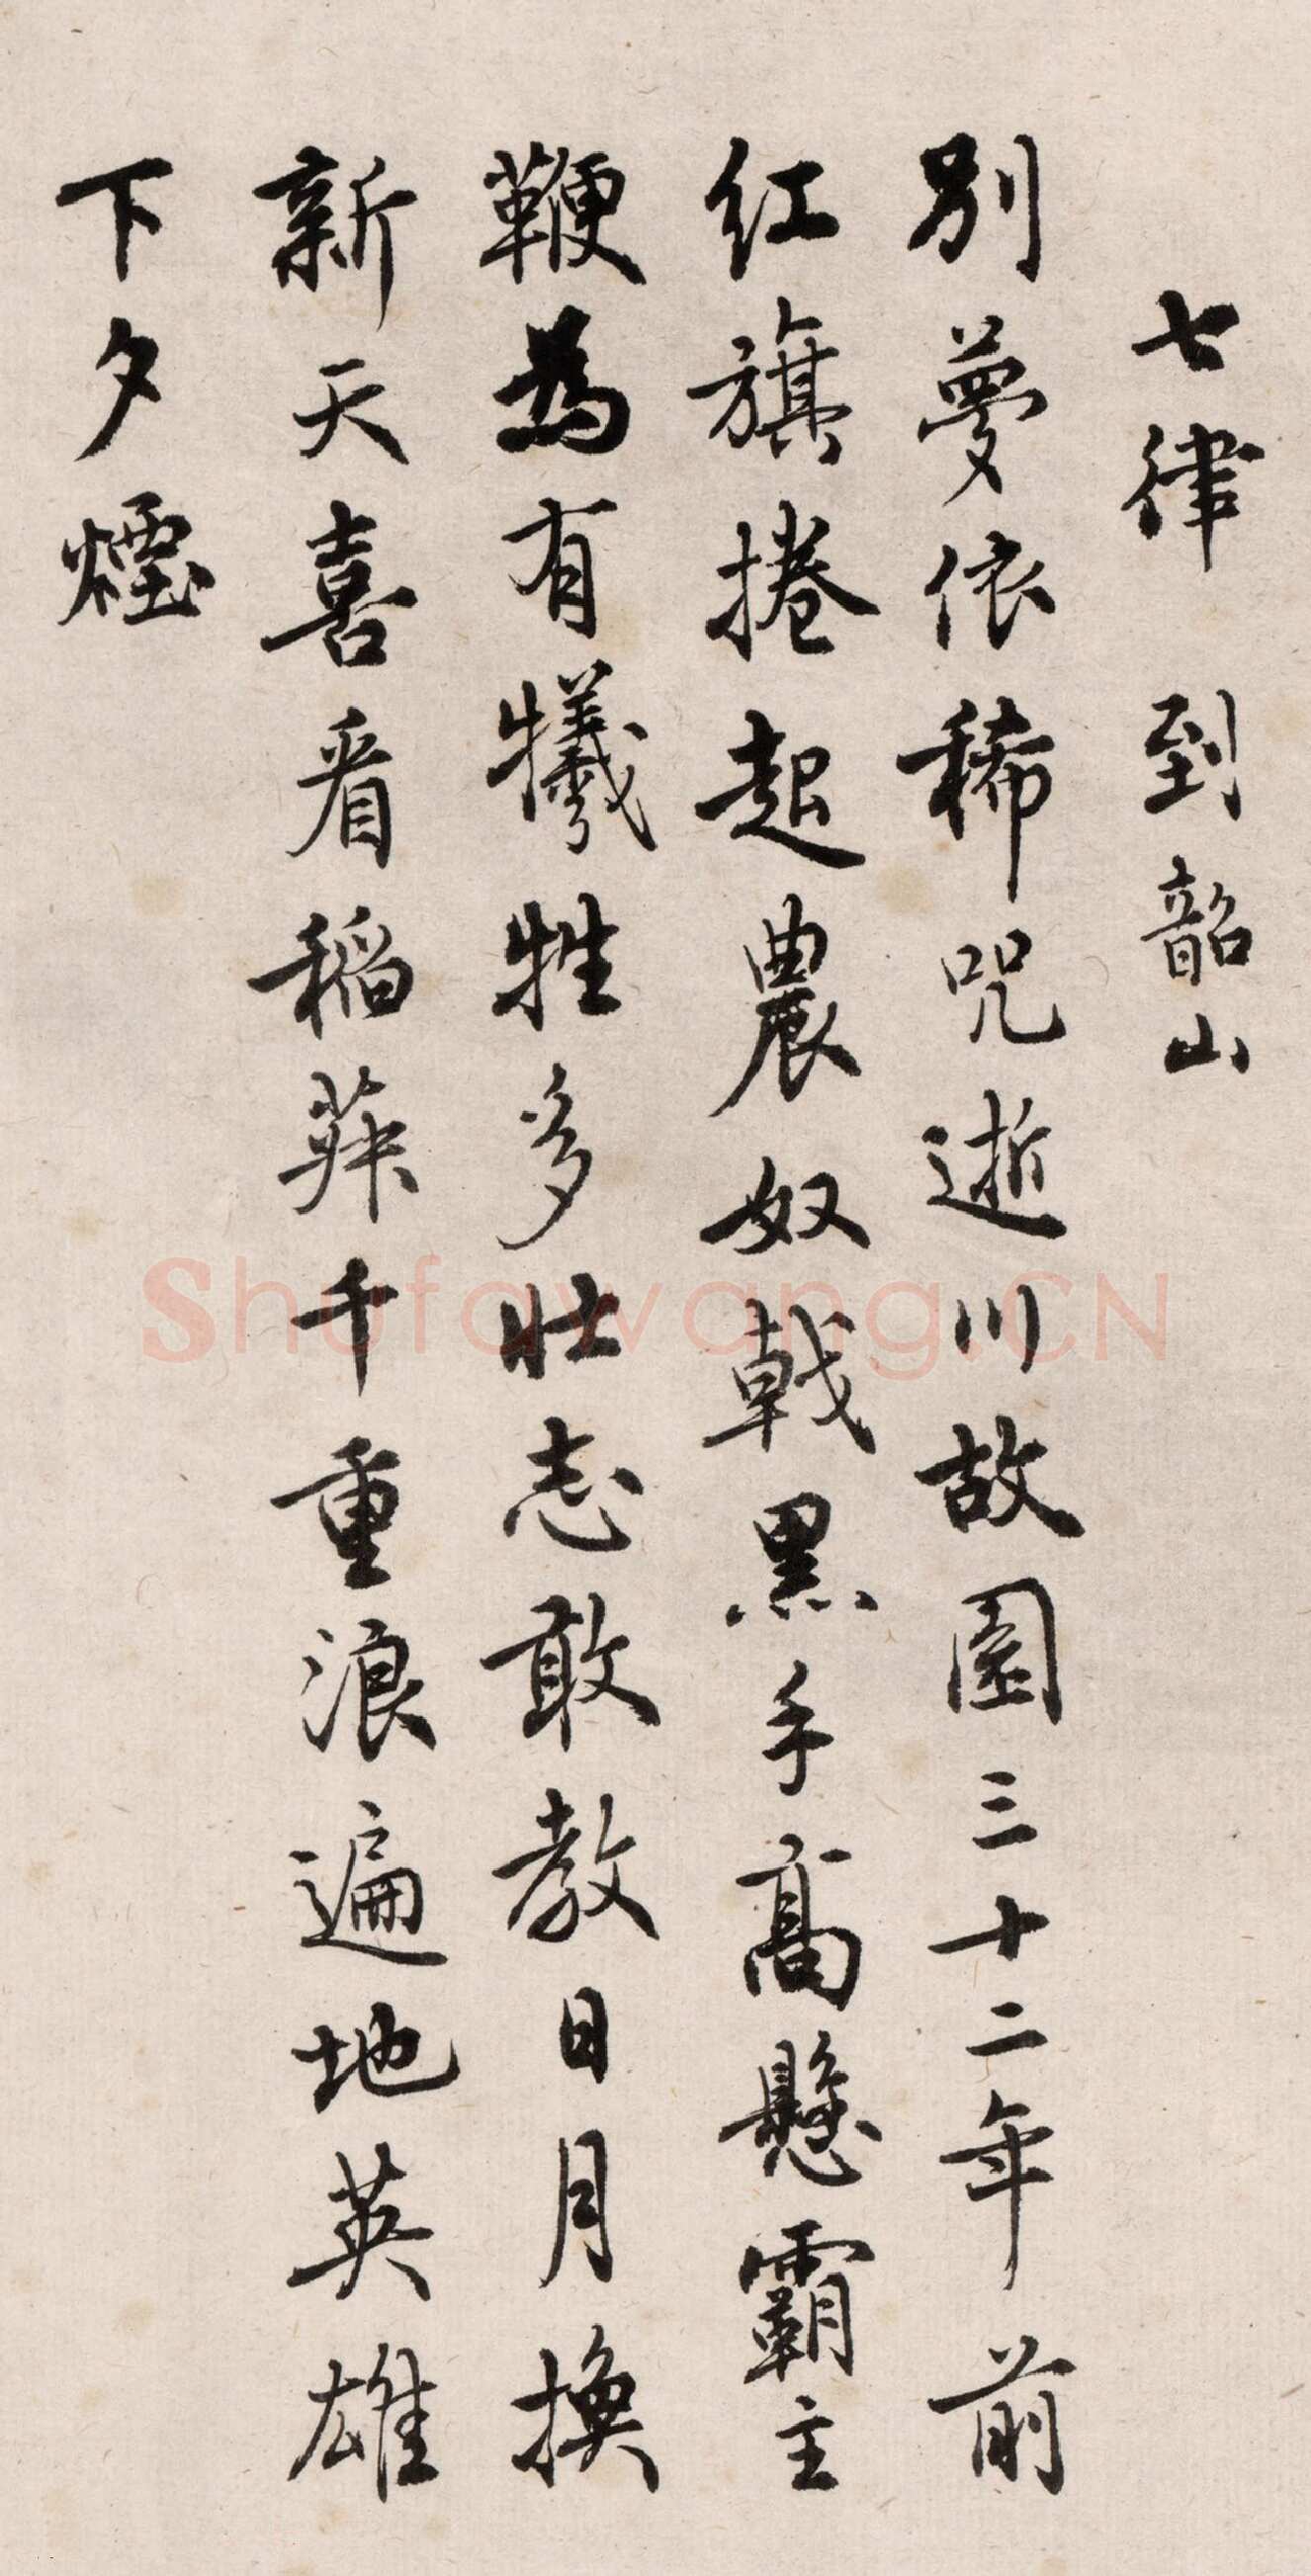 七律 到韶山
別夢依稀咒逝川故園三十二年前
紅旗捲起農奴戟黑手高懸霸主
鞭為有犧牲多壯志敢教日月換
新天喜看稻菽千重浪遍地英雄
下夕煙
Shufawang.CN